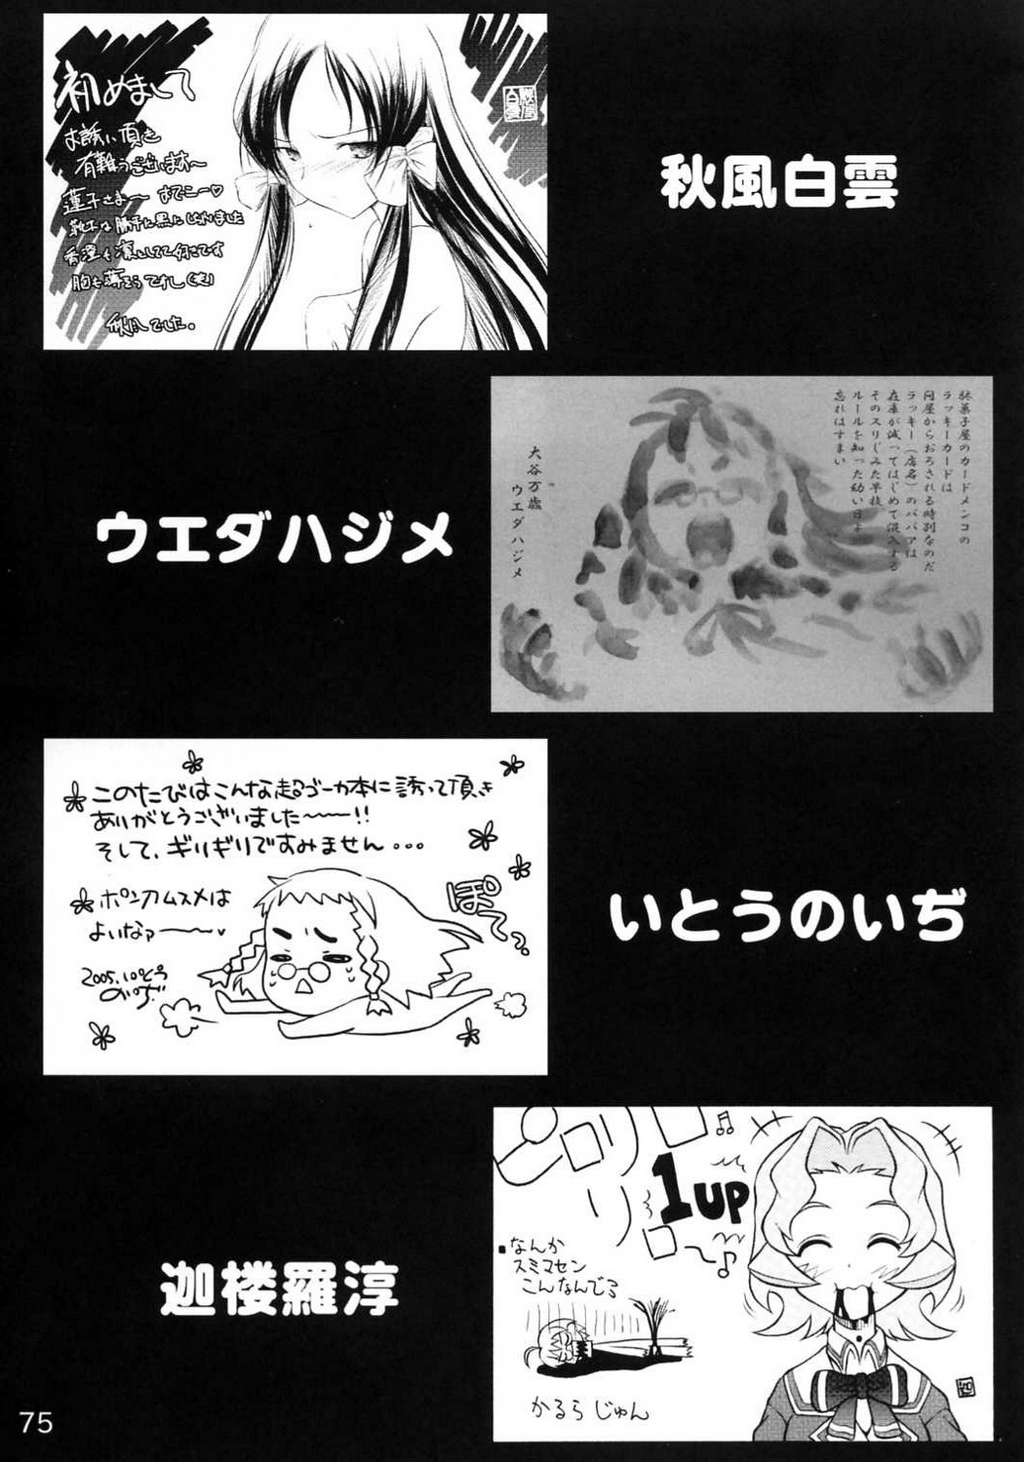 初めまして
お誘い頂き
有難うございます〜
蓮子さま〜 おでこー♡
靴下は勝手に黒にしちゃいました
胸も薄そうですし(笑)
秋風でした。
秋風白雲
駄菓子屋のカードメンコの
ラッキーカードは
問屋からおろされる時別なのだ
ラッキー（店名）のババアは
在庫が減ってはじめて混入する
そのスリじみた早技
ルールを知った幼い日よ
忘れはすまい
大谷万歳
ウエダハジメ
ウエダハジメ
このたびはこんな超ゴーカ本に誘って頂き
ありがとうございました〜〜!!
そして、ギリギリですみません...
ポンカムスメは
よいなァ〜〜
2005.10
のいぢ
ぽて
いとうのいぢ
ピロリロリロ〜♪
1UP
なんか
スミマセン
こんなんでろ
かるら じゅん
迦楼羅淳
75